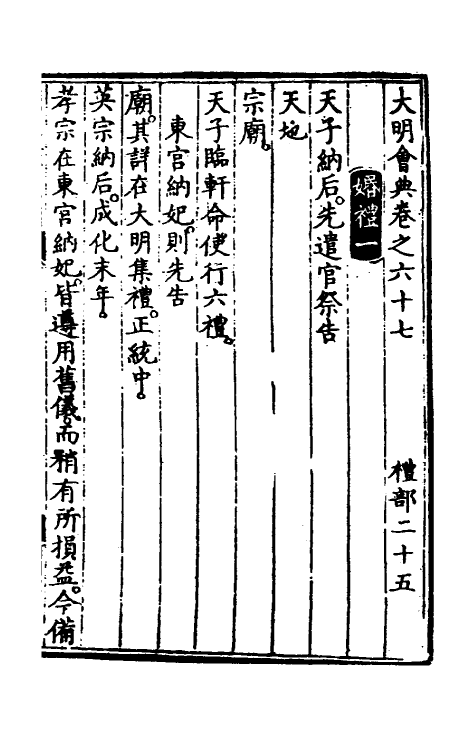 大明會典卷之六十七 禮部二十五
婚禮一
天子納后。先遣官祭告
天地
宗廟。
天子臨軒命使行六禮。
東宮納妃。則先告
廟。其詳在大明集禮。正統中。
英宗納后。成化末年。
孝宗在東宮納妃。皆遵用舊儀。而稍有所損益。今備